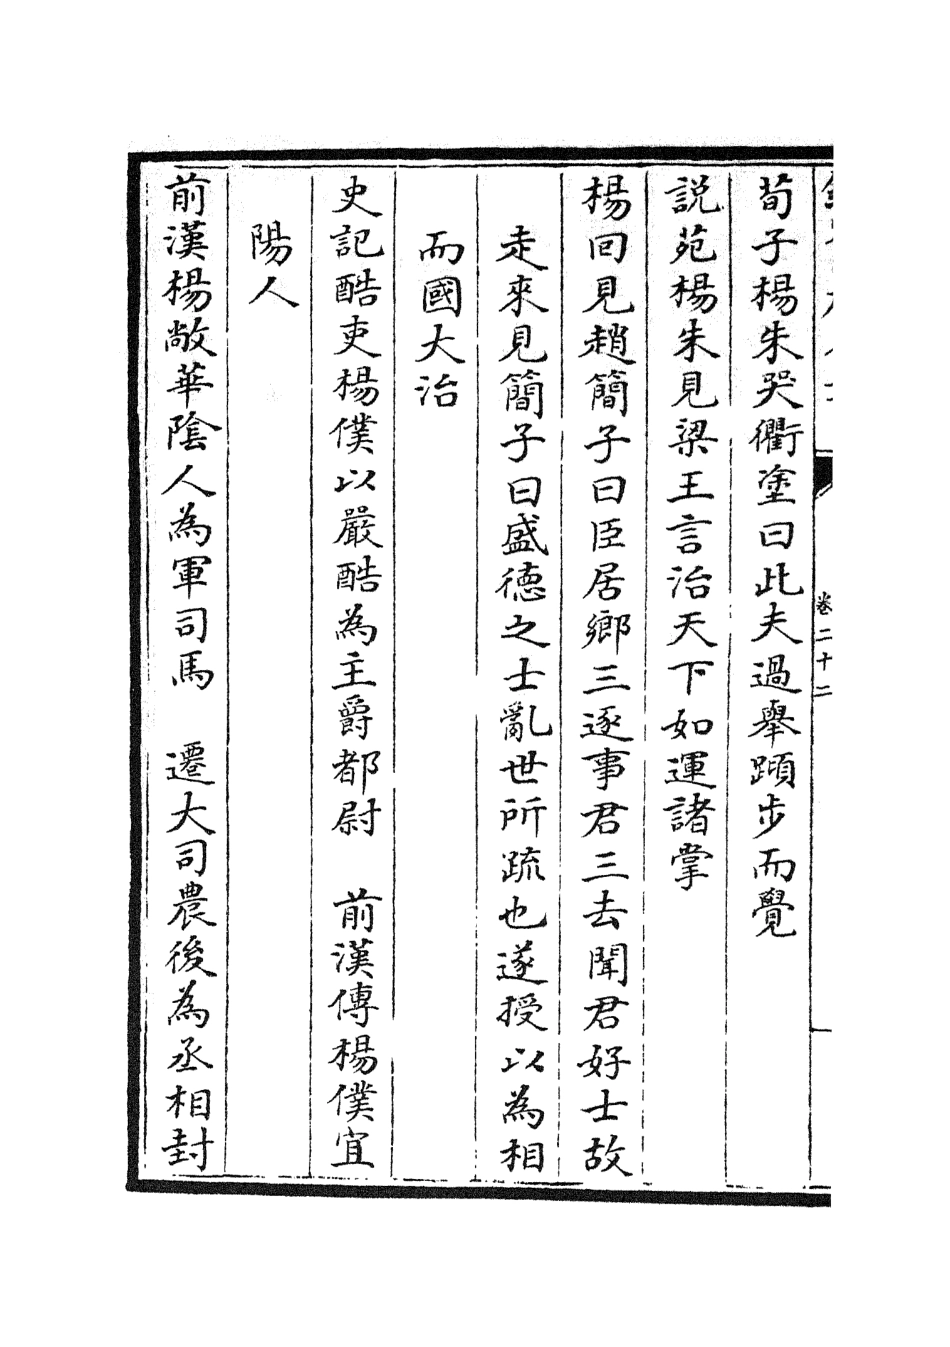 卷二十二
荀子楊朱哭衢塗曰此夫過舉蹞步而覺
說苑楊朱見梁王言治天下如運諸掌
楊回見趙簡子曰臣居鄉三逐事君三去聞君好士故
走來見簡子曰盛德之士亂世所疏也遂授以為相
而國大治
史記酷吏楊僕以嚴酷為主爵都尉　前漢傳楊僕宜
陽人
前漢楊敞華陰人為軍司馬　遷大司農後為丞相封